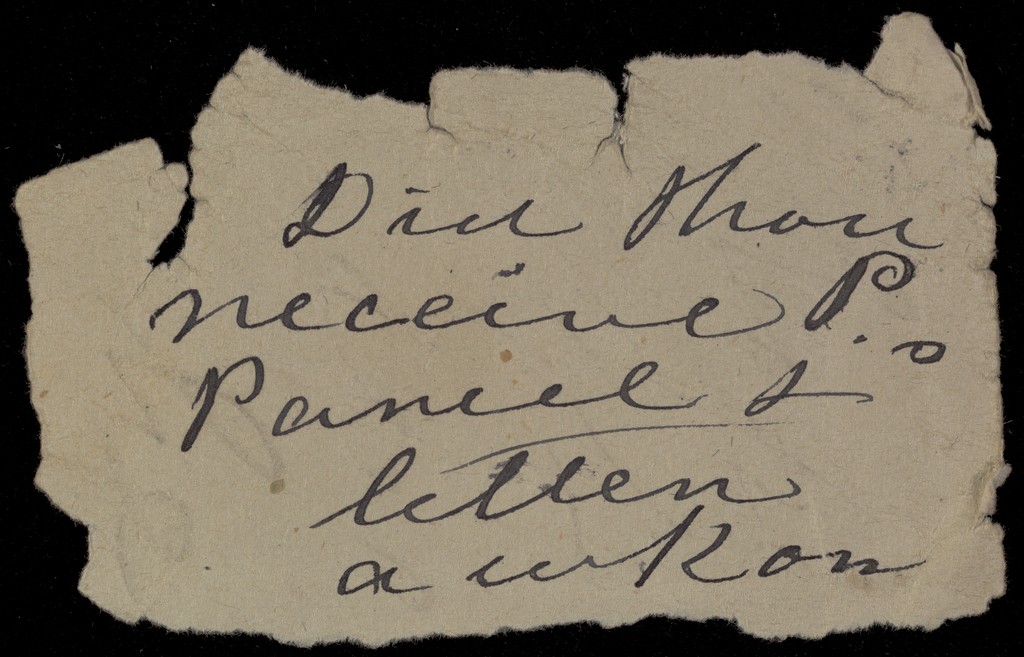 Did thou
receive P.o
Parcel &
letter
a wk or